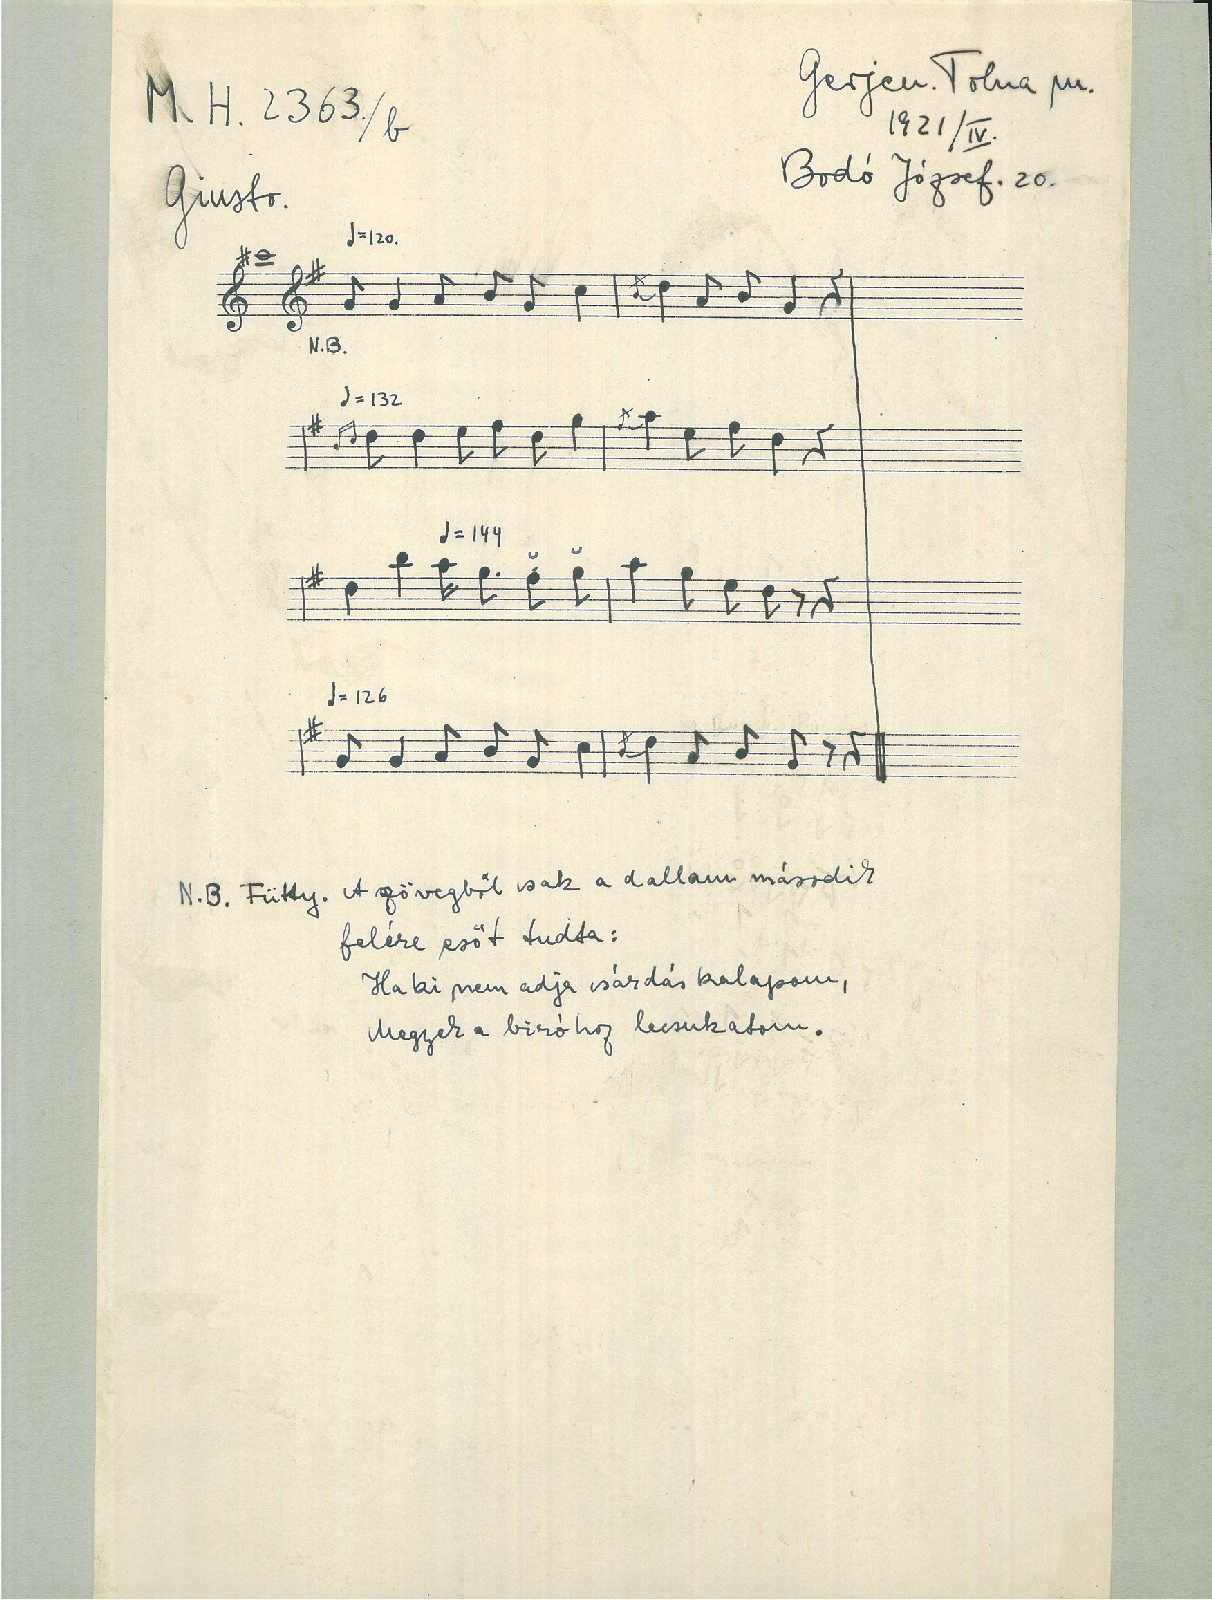 M. H. 2363/b
Gerjen. Tolna m.
1921/IV.
Bodó József. 20.
Giusto.
♩=120.
N.B.
♩=132
♩=144
♩=126
N.B. Fütty. A szövegből csak a dallam második
felére esőt tudta:
Ha ki nem adja csárdás kalapom,
Megyek a biróhoz lecsukatom.